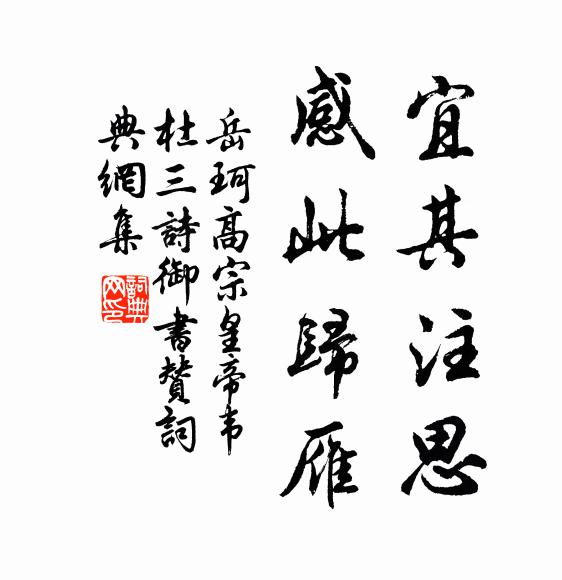 宜其注思
感此歸雁
岳珂高宗皇帝韦
杜三詩御書赞詞
典網集
詞典网印